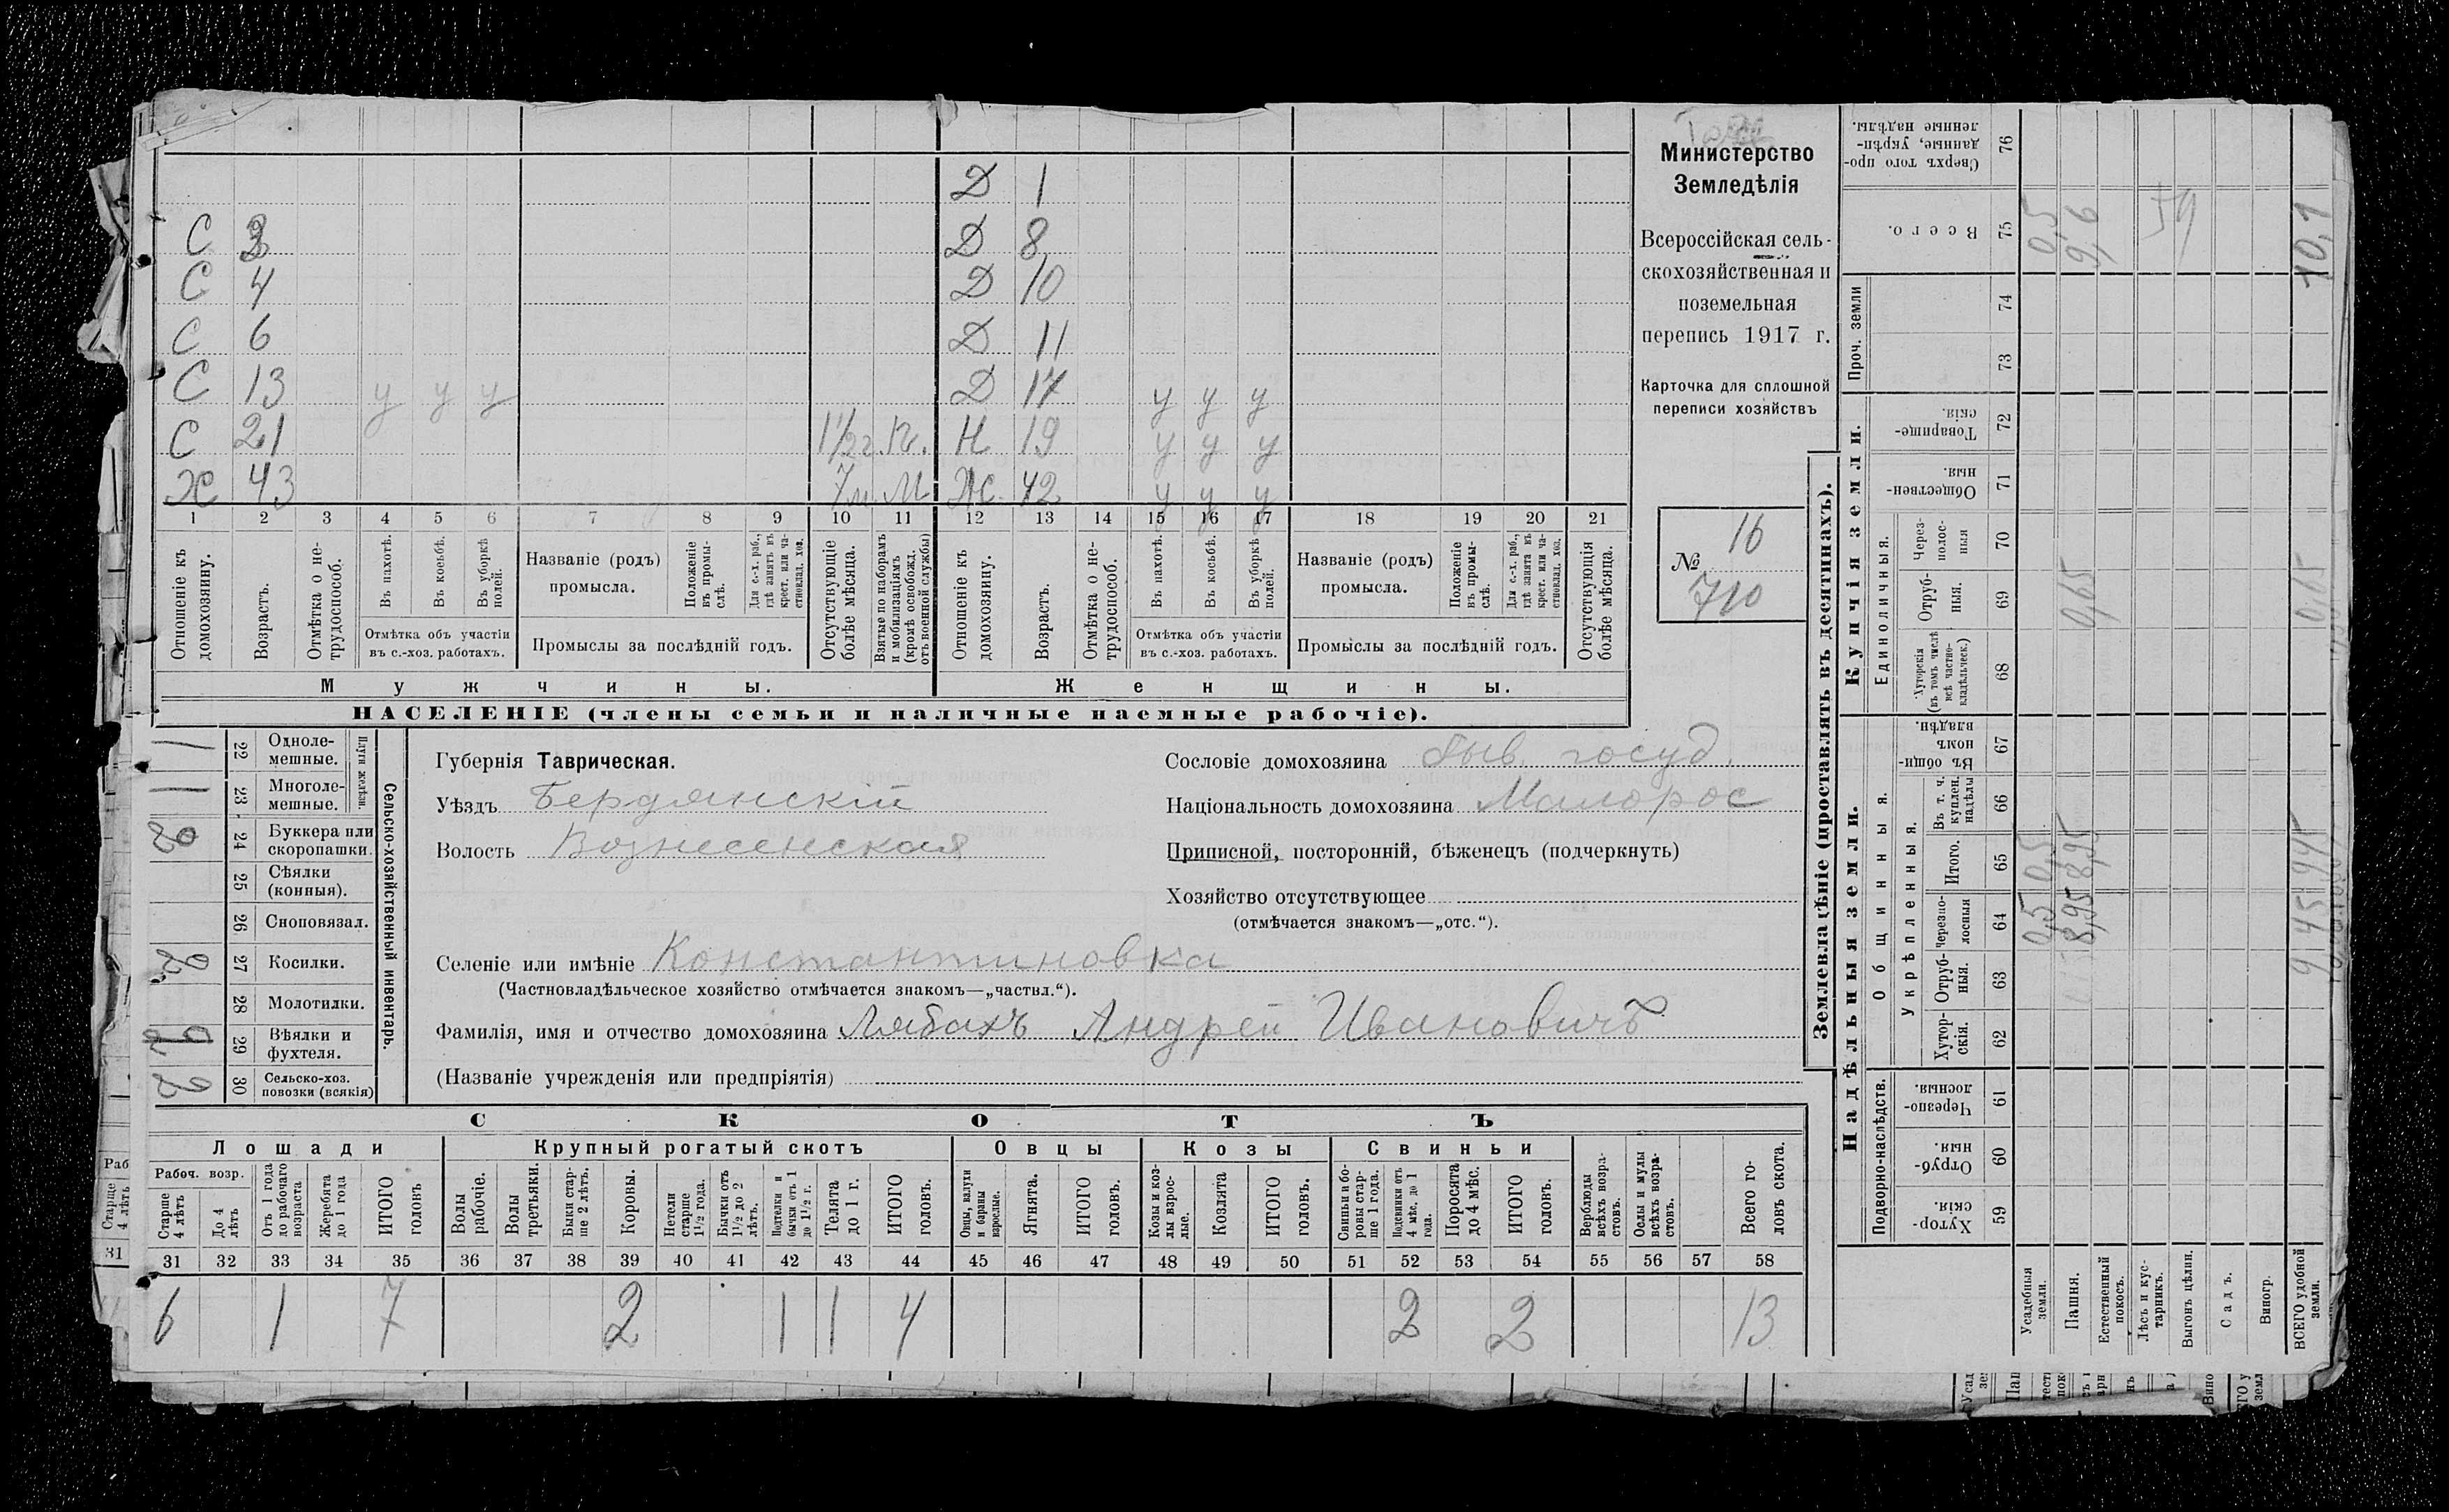 Д 1
С 3 Д 8
С 4 Д 10
С 6 Д 11
С 13 у у у Д 17 у у у
С 21 1½ г. Н 19 у у у
Х 43 7 м. М Ж. 42 у у у
1 2 3 4 5 6 7 8 9 10 11 12 13 14 15 16 17 18 19 20 21
Отношеніе къ домохозяину.
Возрастъ.
Отмѣтка о нетрудоспособ.
Въ пахотѣ.
Въ косьбѣ.
Въ уборкѣ полей.
Отмѣтка объ участіи
въ с.-хоз. работахъ.
Названіе (родъ)
промысла.
Положеніе въ промыслѣ.
Для с.-х. раб., гдѣ занятъ въ крест. или частновлад. хоз.
Промыслы за послѣдній годъ.
Отсутствующіе болѣе мѣсяца.
Взятые по наборамъ и мобилизаціямъ (кромѣ освобожд. отъ военной службы)
Отношеніе къ домохозяину.
Возрастъ.
Отмѣтка о нетрудоспособ.
Въ пахотѣ.
Въ косьбѣ.
Въ уборкѣ полей.
Отмѣтка объ участіи
въ с.-хоз. работахъ.
Названіе (родъ)
промысла.
Положеніе въ промыслѣ.
Для с.-х. раб., гдѣ занятъ въ крест. или частновлад. хоз.
Промыслы за послѣдній годъ.
Отсутствующія болѣе мѣсяца.
Мужчины. Женщины.
НАСЕЛЕНІЕ (члены семьи и наличные наемные рабочіе).
Министерство
Земледѣлія
Всероссійская сель-
скохозяйственная и
поземельная
перепись 1917 г.
Карточка для сплошной
переписи хозяйствъ
16
№
710
Сельско-хозяйственный инвентарь.
Плуги желѣзн.
1 22 Одноле-
мешные.
1 23 Многоле-
мешные.
24 Буккера или
скоропашки.
25 Сѣялки
(конныя).
26 Сноповязал.
27 Косилки.
28 Молотилки.
29 Вѣялки и
фухтеля.
2 30 Сельско-хоз.
повозки (всякія)
Губернія Таврическая.
Уѣздъ Бердянскій
Волость Вознесенская
Сословіе домохозяина быв. госуд.
Національность домохозяина Малорос
Приписной, посторонній, бѣженецъ (подчеркнуть)
Хозяйство отсутствующее
(отмѣчается знакомъ—„отс.“).
Селеніе или имѣніе Константиновка
(Частновладѣльческое хозяйство отмѣчается знакомъ—„частвл.“).
Фамилія, имя и отчество домохозяина Лябахъ Андрей Ивановичъ
(Названіе учрежденія или предпріятія)
СКОТЪ
Лошади Крупный рогатый скотъ Овцы Козы Свиньи
Рабоч. возр.
Старше 4 лѣтъ
До 4 лѣтъ
Отъ 1 года до рабочаго возраста
Жеребята до 1 года
ИТОГО головъ
Волы рабочіе.
Волы третьяки.
Быки старше 2 лѣтъ.
Коровы.
Нетели старше 1½ года.
Бычки отъ 1½ до 2 лѣтъ.
Подтелки и бычки отъ 1 до 1½ г.
Телята до 1 г.
ИТОГО головъ.
Овцы, валухи и бараны взрослые.
Ягнята.
ИТОГО головъ.
Козы и козлы взрослые.
Козлята
ИТОГО головъ.
Свиньи и боровы старше 1 года.
Подсвинки отъ 4 мѣс. до 1 года.
Поросята до 4 мѣс.
ИТОГО головъ.
Верблюды всѣхъ возрастовъ.
Ослы и мулы всѣхъ возрастовъ.
Всего головъ скота.
31 32 33 34 35 36 37 38 39 40 41 42 43 44 45 46 47 48 49 50 51 52 53 54 55 56 57 58
6 1 7 2 1 1 4 2 2 13
Землевладѣніе (проставлять въ десятинахъ).
Надѣльныя земли. Купчія земли. Проч. земли
Подворно-наслѣдств.
Общинныя.
Укрѣпленныя.
Единоличныя.
Хуторскія 59
Отрубныя. 60
Черезполосныя 61
Хуторскія. 62
Отрубныя. 63
Черезполосныя 64
Итого. 65
Въ т. ч. куплен. надѣлы 66
Въ общинномъ владѣн. 67
Хуторскія (въ томъ числѣ всѣ частновладѣльческ.) 68
Отрубныя. 69
Черезполосныя 70
Общественныя. 71
Товарищескія. 72
73
74
Всего. 75
Сверхъ того проданные, укрѣпленные надѣлы. 76
Усадебныя земли. 0,5 0,5 0,5
Пашня. 8,95 8,95 0,65 9,6
Естественный покосъ.
Лѣсъ и кустарникъ.
Выгонъ цѣлин.
Садъ.
Виногр.
ВСЕГО удобной земли. 9,45 9,45 0,65 10,1
Раб
Старше 4 лѣтъ
31